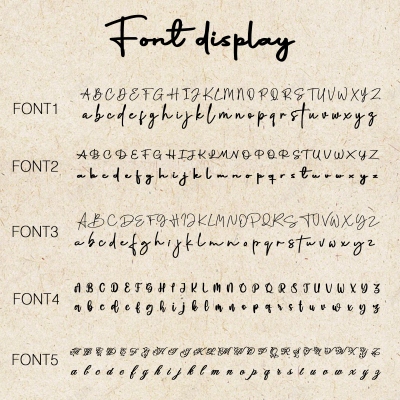 Font display
FONT1
ABCDEFGHIJKLMNOPQRSTUVWXYZ
abcdefghijklmnopqrstuvwxyz
FONT2
ABCDEFGHIJKLMNOPQRSTUVWXYZ
abcdefghijklmnopqrstuvwxyz
FONT3
ABCDEFGHIJKLMNOPQRSTUVWXYZ
abcdefghijklmnopqrstuvwxyz
FONT4
ABCDEFGHIJKLMNOPQRSTUVWXYZ
abcdefghijklmnopqrstuvwxyz
FONT5
ABCDEFGHIJKLMNOPQRSTUVWXYZ
abcdefghijklmnopqrstuvwxyz